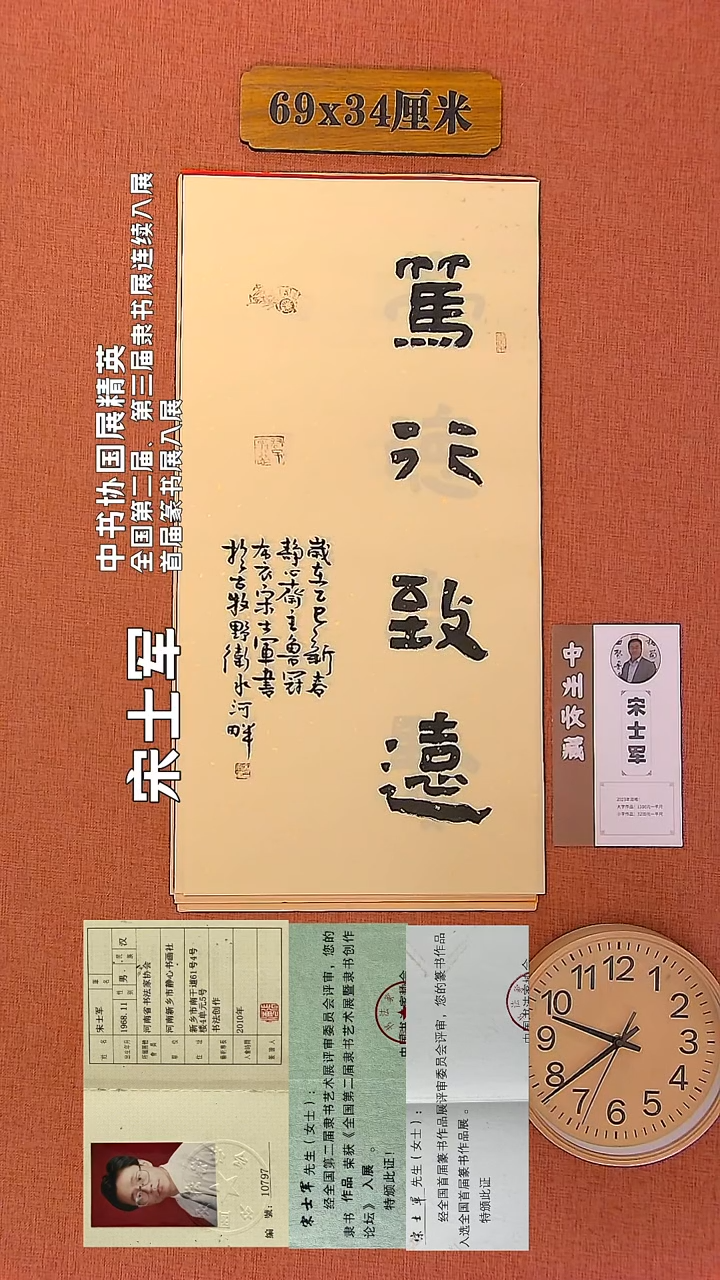 69x34厘米
中书协国展精英
全国第二届、第三届隶书展连续入展
首届篆书展入展
宋士军
篤行致遠
歲在乙巳新春
静心齋主魯冠
布衣宋士軍書
於古牧野衛水河畔
宋士军
宋士军
1968.11
男
汉
河南省书法家协会
河南新乡市静心书画社
新乡市南干道61号4号
楼4单元5号
书法创作
2010年
编 號: 10797
宋士军 先生(女士):
经全国第二届隶书艺术展评审委员会评审,您的
隶书 作品 荣获《全国第二届隶书艺术展暨隶书创作
论坛》 入展 。
特颁此证!
宋士军 先生(女士):
经全国首届篆书作品展评审委员会评审,您的篆书作品
入选全国首届篆书作品展 。
特颁此证
12
1
2
3
4
5
6
7
8
9
10
11